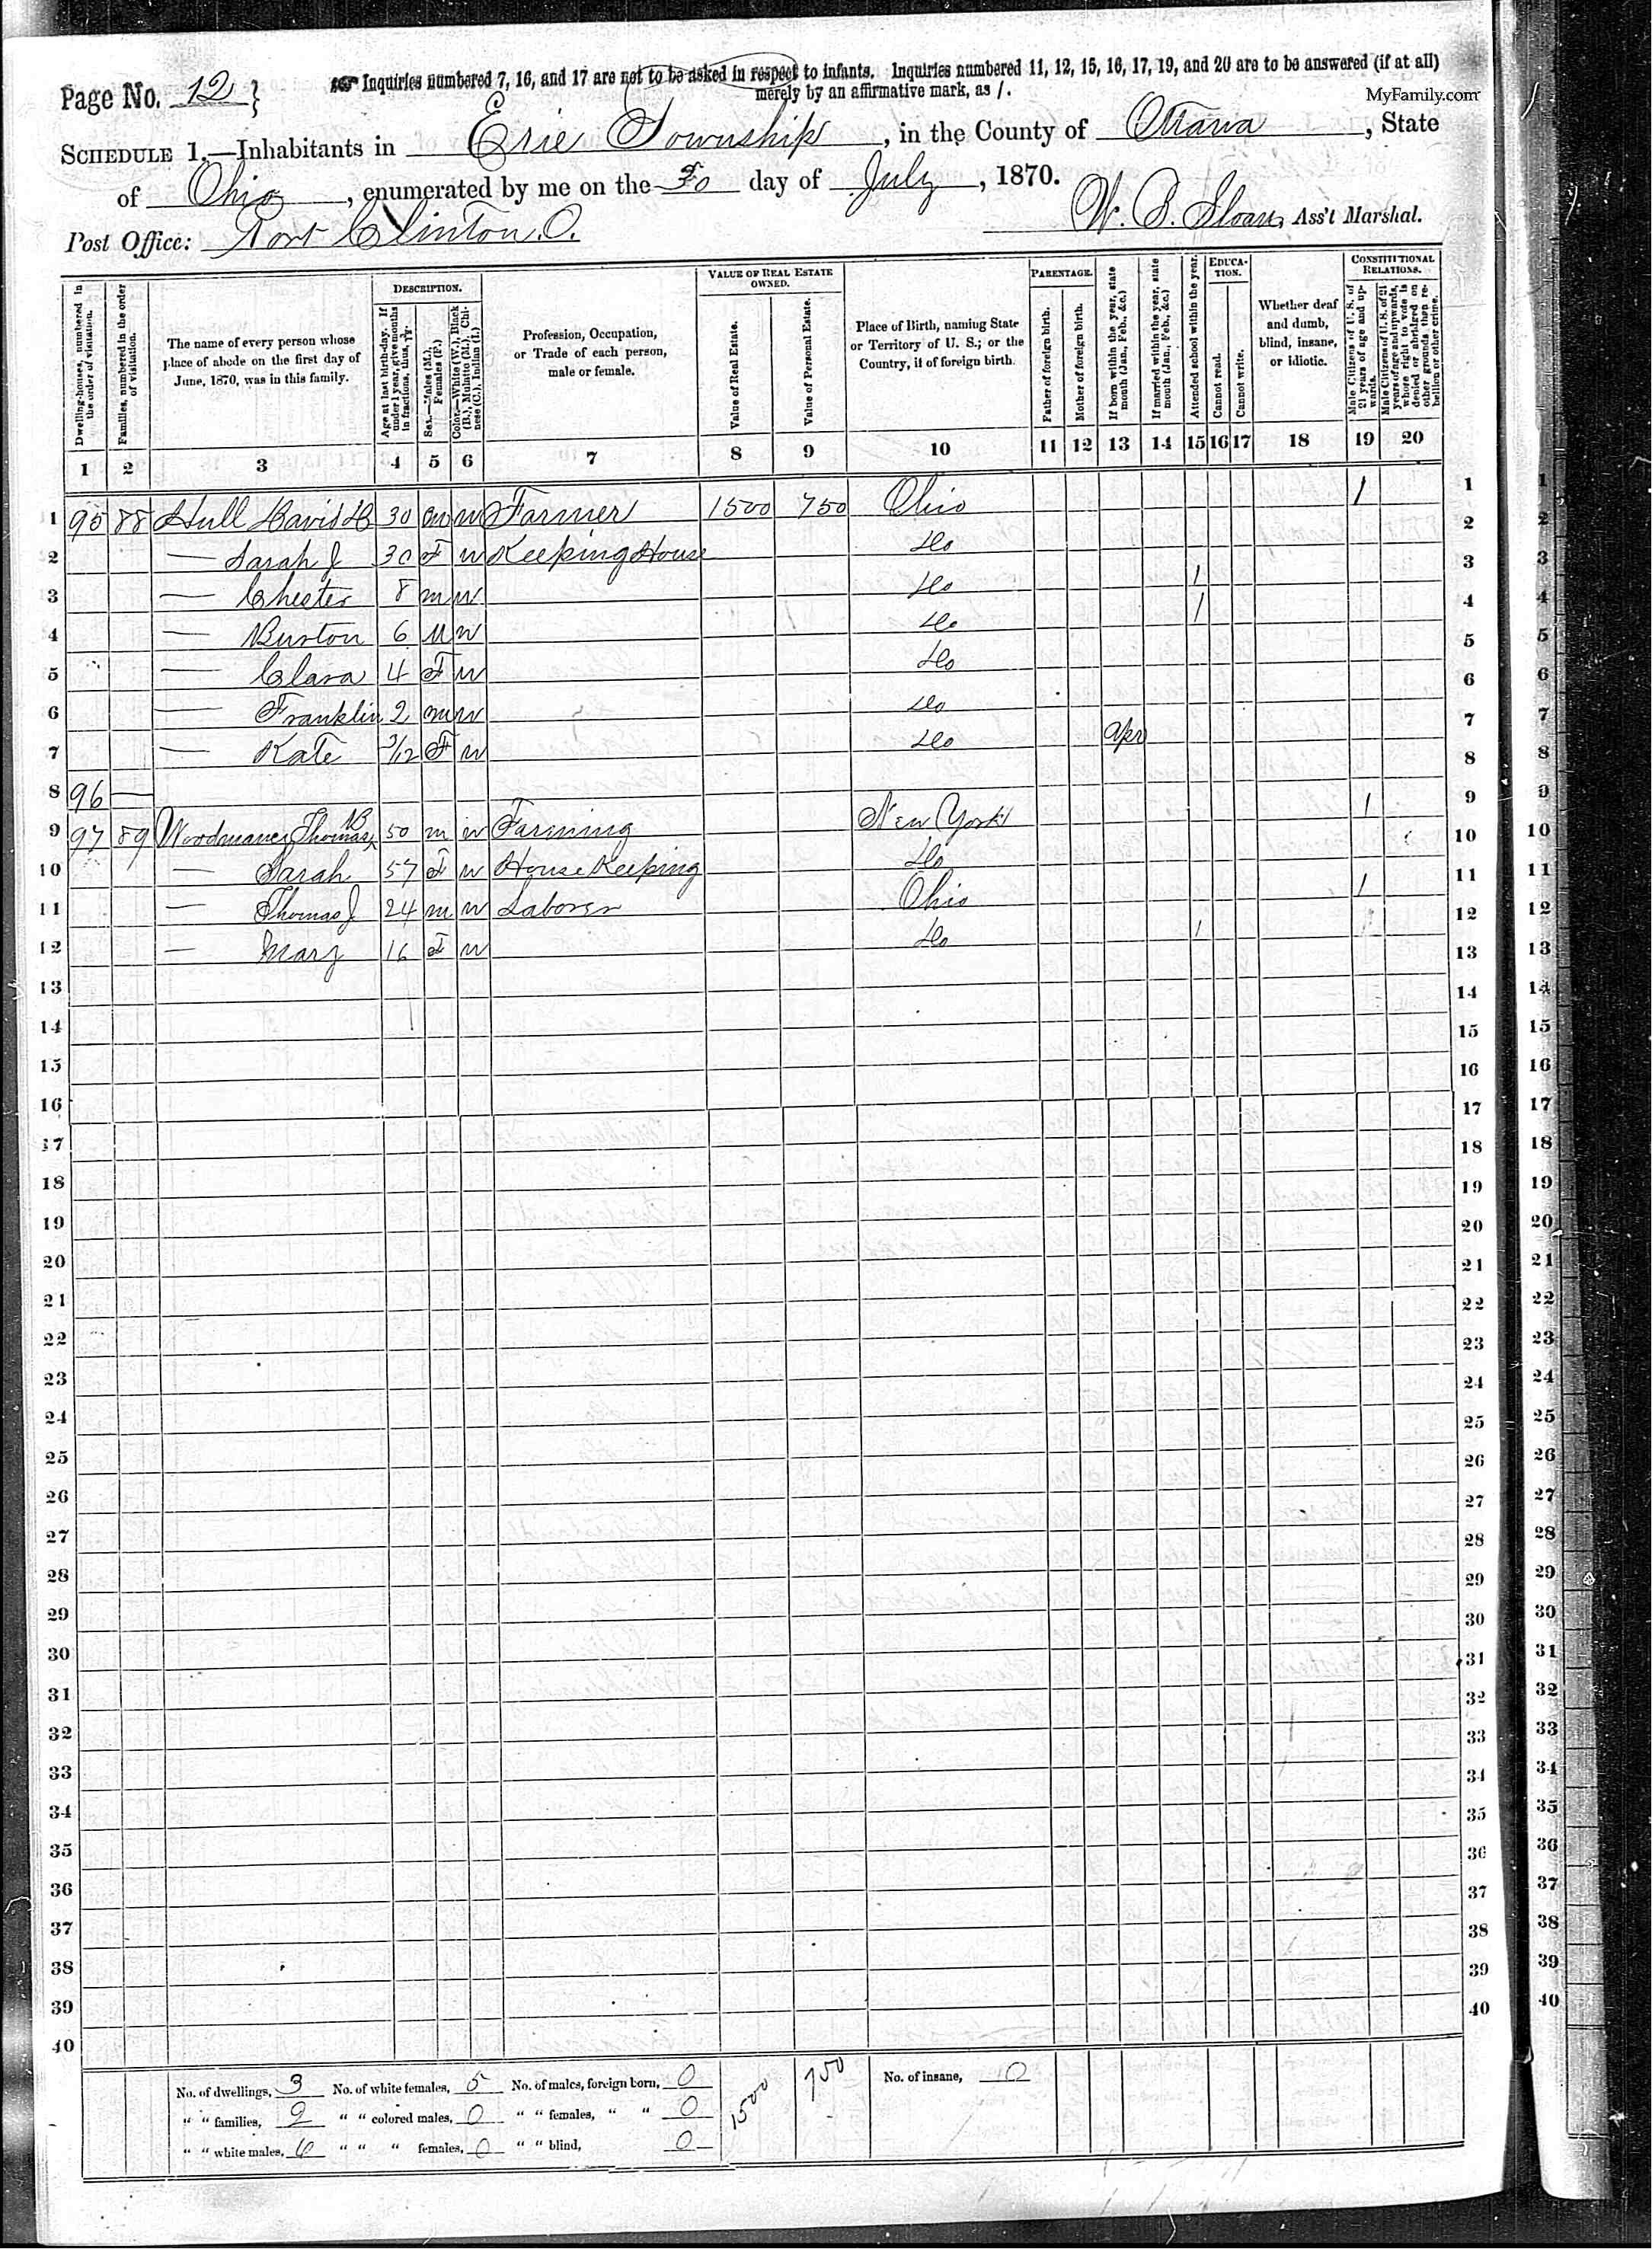 Page No. 12 }
Inquiries numbered 7, 16, and 17 are not to be asked in respect to infants. Inquiries numbered 11, 12, 15, 16, 17, 19, and 20 are to be answered (if at all)
merely by an affirmative mark, as /.
MyFamily.com
SCHEDULE 1.—Inhabitants in Erie Township, in the County of Ottawa, State
of Ohio, enumerated by me on the 20 day of July, 1870.
Post Office: Port Clinton. O.
W. B. Sloan, Ass't Marshal.
Dwelling-houses, numbered in the order of visitation.
Families, numbered in the order of visitation.
The name of every person whose place of abode on the first day of June, 1870, was in this family.
DESCRIPTION.
Age at last birth-day. If under 1 year, give months in fractions, thus, 3/12.
Sex.—Males (M.), Females (F.)
Color.—White (W.), Black (B.), Mulatto (M.), Chinese (C.), Indian (I.)
Profession, Occupation, or Trade of each person, male or female.
VALUE OF REAL ESTATE OWNED.
Value of Real Estate.
Value of Personal Estate.
Place of Birth, naming State or Territory of U. S.; or the Country, if of foreign birth.
PARENTAGE.
Father of foreign birth.
Mother of foreign birth.
If born within the year, state month (Jan., Feb., &c.)
If married within the year, state month (Jan., Feb., &c.)
Attended school within the year.
EDUCATION.
Cannot read.
Cannot write.
Whether deaf and dumb, blind, insane, or idiotic.
CONSTITUTIONAL RELATIONS.
Male Citizens of U. S. of 21 years of age and upwards.
Male Citizens of U. S. of 21 years of age and upwards, whose right to vote is denied or abridged on other grounds than rebellion or other crime.
1 2 3 4 5 6 7 8 9 10 11 12 13 14 15 16 17 18 19 20
1 95 88 Hull Davis 30 m w Farmer 1500 750 Ohio / 1
2 — Sarah J 30 F w Keeping House Do 2
3 — Chester 8 m w Do / 3
4 — Burton 6 M w Do / 4
5 — Clara 4 F w Do 5
6 — Franklin 2 m w Do 6
7 — Kate 3/12 F w Do Apr 7
8 96 — 8
9 97 89 Woodmancy Thomas B 50 m w Farming New York / 9
10 — Sarah 57 F w House Keeping Do 10
11 — Thomas J 24 m w Laborer Ohio / 11
12 — Mary 16 F w Do / 12
13 13
14 14
15 15
16 16
17 17
18 18
19 19
20 20
21 21
22 22
23 23
24 24
25 25
26 26
27 27
28 28
29 29
30 30
31 31
32 32
33 33
34 34
35 35
36 36
37 37
38 38
39 39
40 40
No. of dwellings, 3 No. of white females, 5 No. of males, foreign born, 0 1500 750 No. of insane, 0
" " families, 2 " " colored males, 0 " " females, " " 0
" " white males, 6 " " " females, 0 " " blind, 0